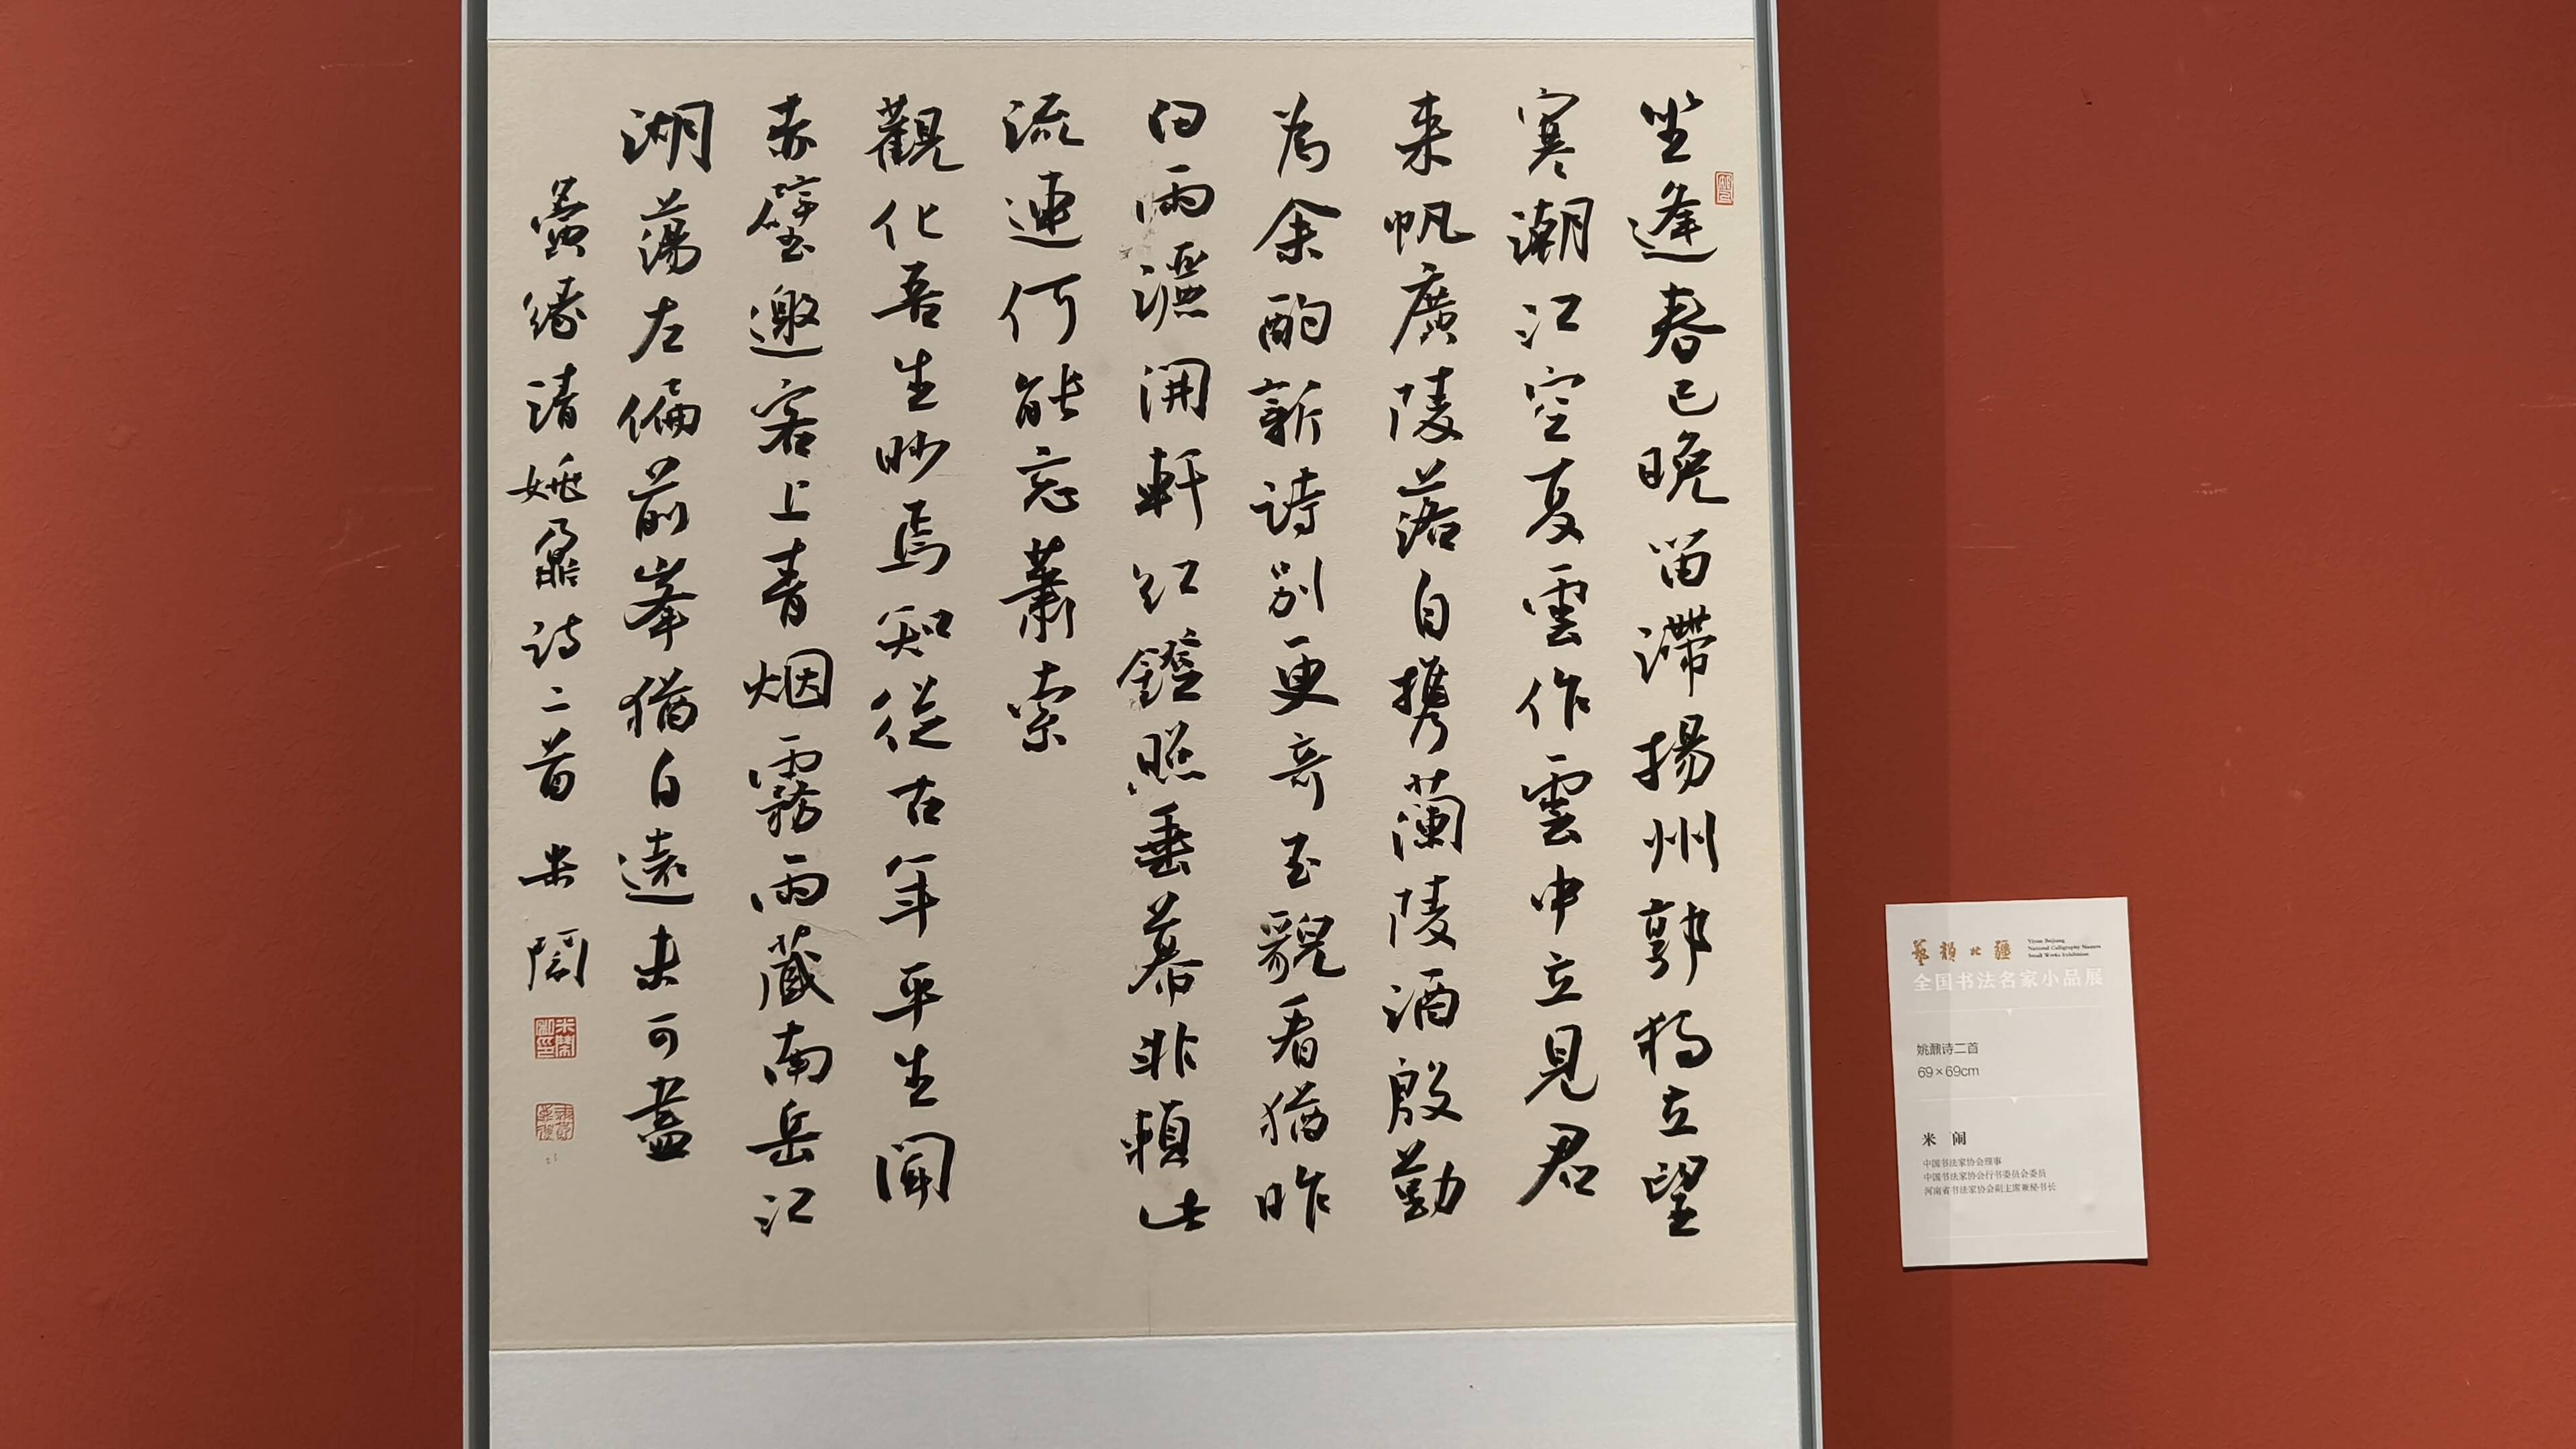 坐逢春已晚留滯揚州郭獨立望
寒潮江空夏雲作雲中立見君
来帆廣陵落自携蘭陵酒殷勤
為余酌新詩别更奇玉貌看猶昨
白雨灑開軒紅鐙照垂幕非賴此
流連何能忘蕭索
觀化吾生眇焉知從古年平生聞
赤壁邀客上青烟霧雨藏南岳江
湖蕩左偏前峯猶自遠未可盡
夤緣清姚鼐詩二首 米鬧
藝韻北疆
Yiyun Beijiang
National Calligraphy Masters
Small Works Exhibition
全国书法名家小品展
姚鼐诗二首
69×69cm
米 闹
中国书法家协会理事
中国书法家协会行书委员会委员
河南省书法家协会副主席兼秘书长